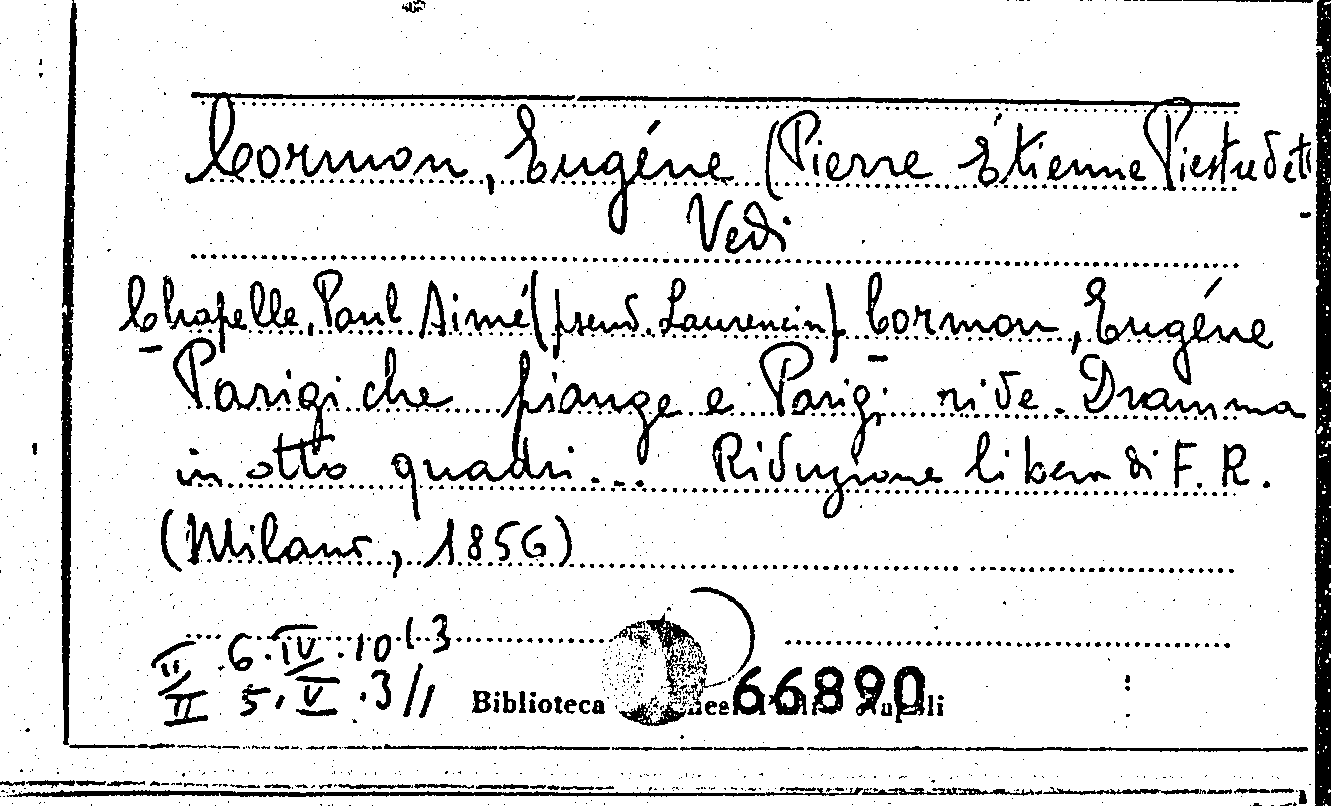 Cormon, Eugéne (Pierre Étienne Piestre det
Vedi
Chapelle, Paul Aimé (pseud. Laurencin) Cormon, Eugéne
Parigi che piange e Parigi ride. Dramma
in otto quadri... Riduzione libera di F. R.
(Milano, 1856)
II .6. IV .10(.3
II 5, V .3//
Biblioteca 66890